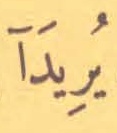 يُرِيدَآ